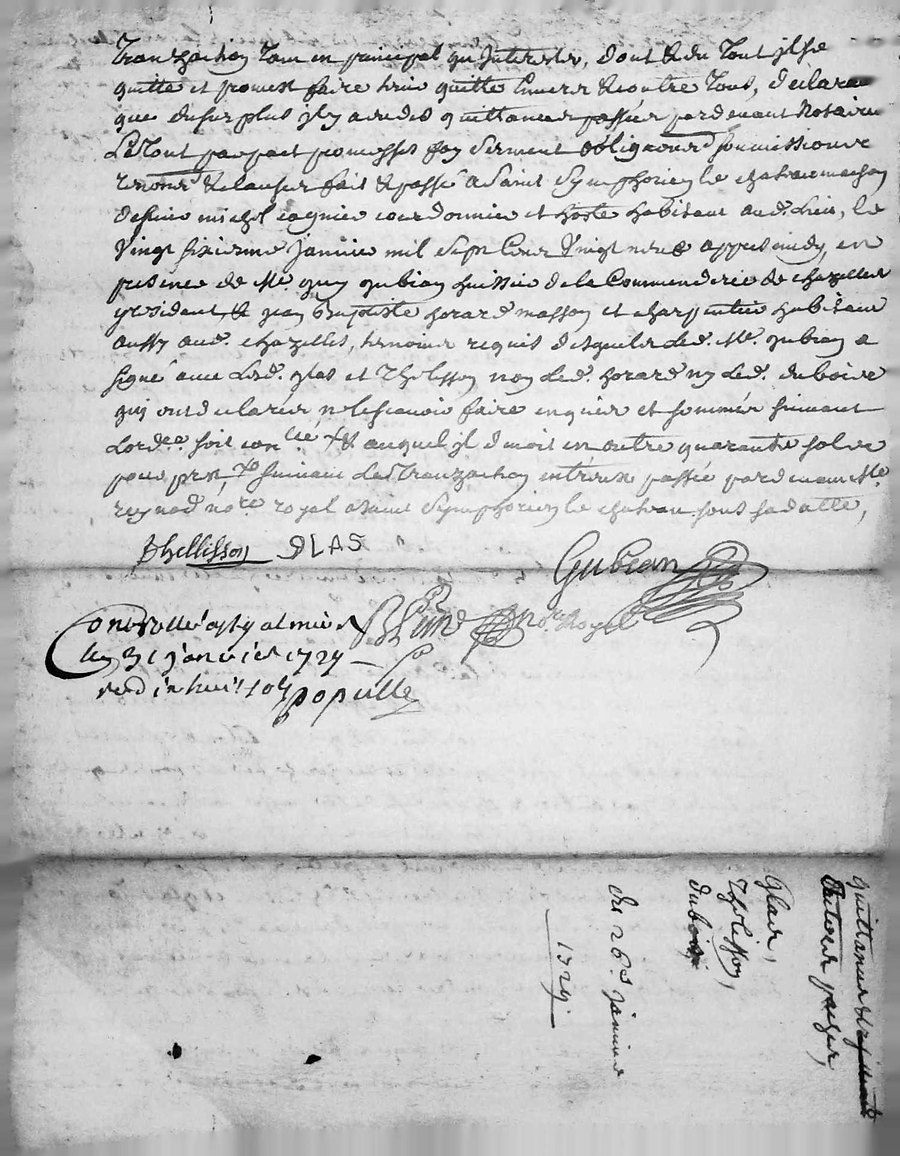 Tranzaction tant en principal qu'Interests, dont & du tout il se
quitte et promest faire tenir quitte Envers & contre Tous, declarant
que du surplus il y a eu des quittances passées pardevant Notaire
Le tout par pact promesses foy serment obligations soumissions
renons & clauses fait & passé a Saint Symphorien le chateau maison
de sieur michel cognier cordonnier et hoste habitant aud. lieu, le
vingt sixieme janvier mil sept Cent Vingt neuf appres midy, en
presence de Me. guy gubian huissier de la Commenderie de chazelles
y residant & jean baptiste horard masson et charpentier habitant
aussy aud. chazelles, temoins requis desquels led. Me. gubian a
signé avec lesd. glas et Thelisson non led. horard ny led. duboise
qui ont declarés ne le scavoir faire enquis et sommés suivant
Lord.ce soit con.llé X & auquel il devoit en outre quarante sols
pour suivant Lad. tranzaction entreux passée pardevant Me.
reynod no.re royal a saint Symphorien le chateau sous sa datte,
Thellisson GLAS
Gubian
no.re Royal
Controllé a St galmier
le 31 janvier 1729
red. in huit sols
populle
quittances
passées,
Glas,
Tholisson,
duboise
du 26.e janvier
1729